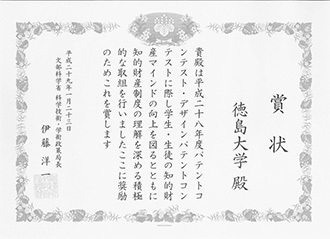 賞状
徳島大学 殿
貴殿は平成二十八年度パテントコ
ンテスト・デザインパテントコン
テストに際し学生・生徒の知的財
産マインドの向上を図るとともに
知的財産制度の理解を深める積極
的な取組を行いましたここに奨励
のためこれを賞します
平成二十九年一月二十三日
文部科学省 科学技術・学術政策局長
伊藤 洋一